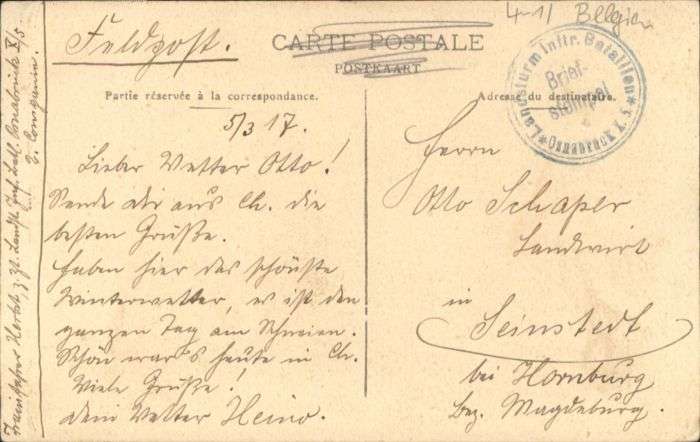 4-1/ Belgien
Feldpost.
CARTE POSTALE
POSTKAART
Partie réservée à la correspondance.
Adresse du destinataire.
Landsturm Inftr. Bataillon * X.X. * Osnabrück *
Brief-
stempel
5/3 17.
Lieber Vetter Otto!
Sende dir aus Ch. die
besten Grüße.
Haben hier das schönste
Winterwetter, es ist den
ganzen Tag am Schneien.
Schön war's heute in Ch.
Viele Grüße!
dein Vetter Heino.
Herrn
Otto Schaper
Landwirt
in
Seinstedt
bei Hornburg
Bez. Magdeburg.
z. Zt. Landst. Inf. Batl. Osnabrück X/5
2. Compagnie.